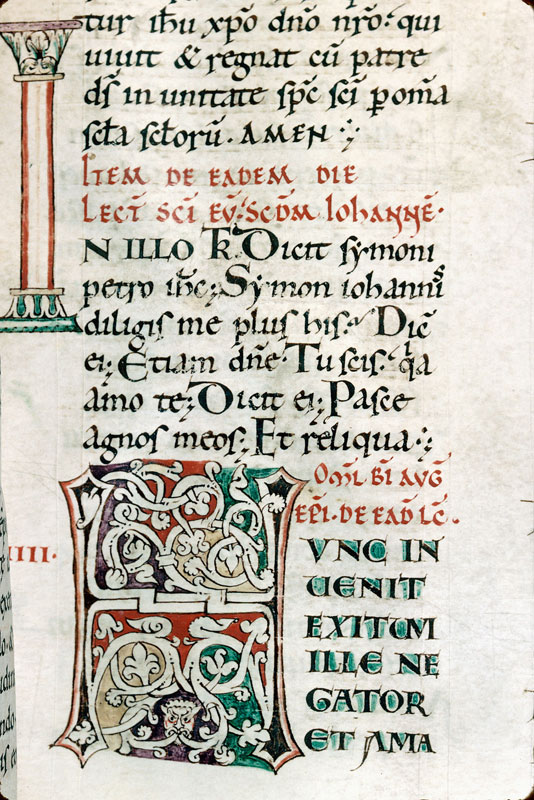 tur ih̅u xp̅o dn̅o nr̅o. qui
uiuit & regnat cu̅ patre
ds̅ in unitate sp̅c sc̅i p̲ om̅a
sc̅la sc̅loru̅. AMEN
ITEM DE EADEM DIE
LECT̅ SC̅I EV̅. SCD̅M IOHANNE̅.
IN ILLO T̅R. Dicit symoni
petro ih̅c; Symon iohannis
diligis me plus his? Dic̅
ei; Etiam dn̅e. Tu scis. q̅a
amo te; Dicit ei; Pasce
agnos meos; Et reliqua
OML̅ BI̅ AVG̅
EP̅I. DE EAD̅ LC̅.
IIII.
HVNC IN
UENIT
EXITUM
ILLE NE
GATOR
ET AMA